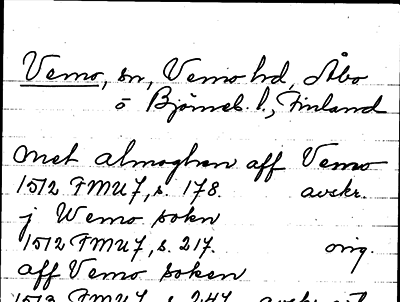 Vemo, sn, Vemo hd, Åbo
o Björneb. l., Finland
met almoghen aff Vemo
1512 FMU 7, s. 178. avskr.
j Wemo sokn
1512 FMU 7, s. 217. orig.
aff Vemo soken
1513 FMU 7, s. 244